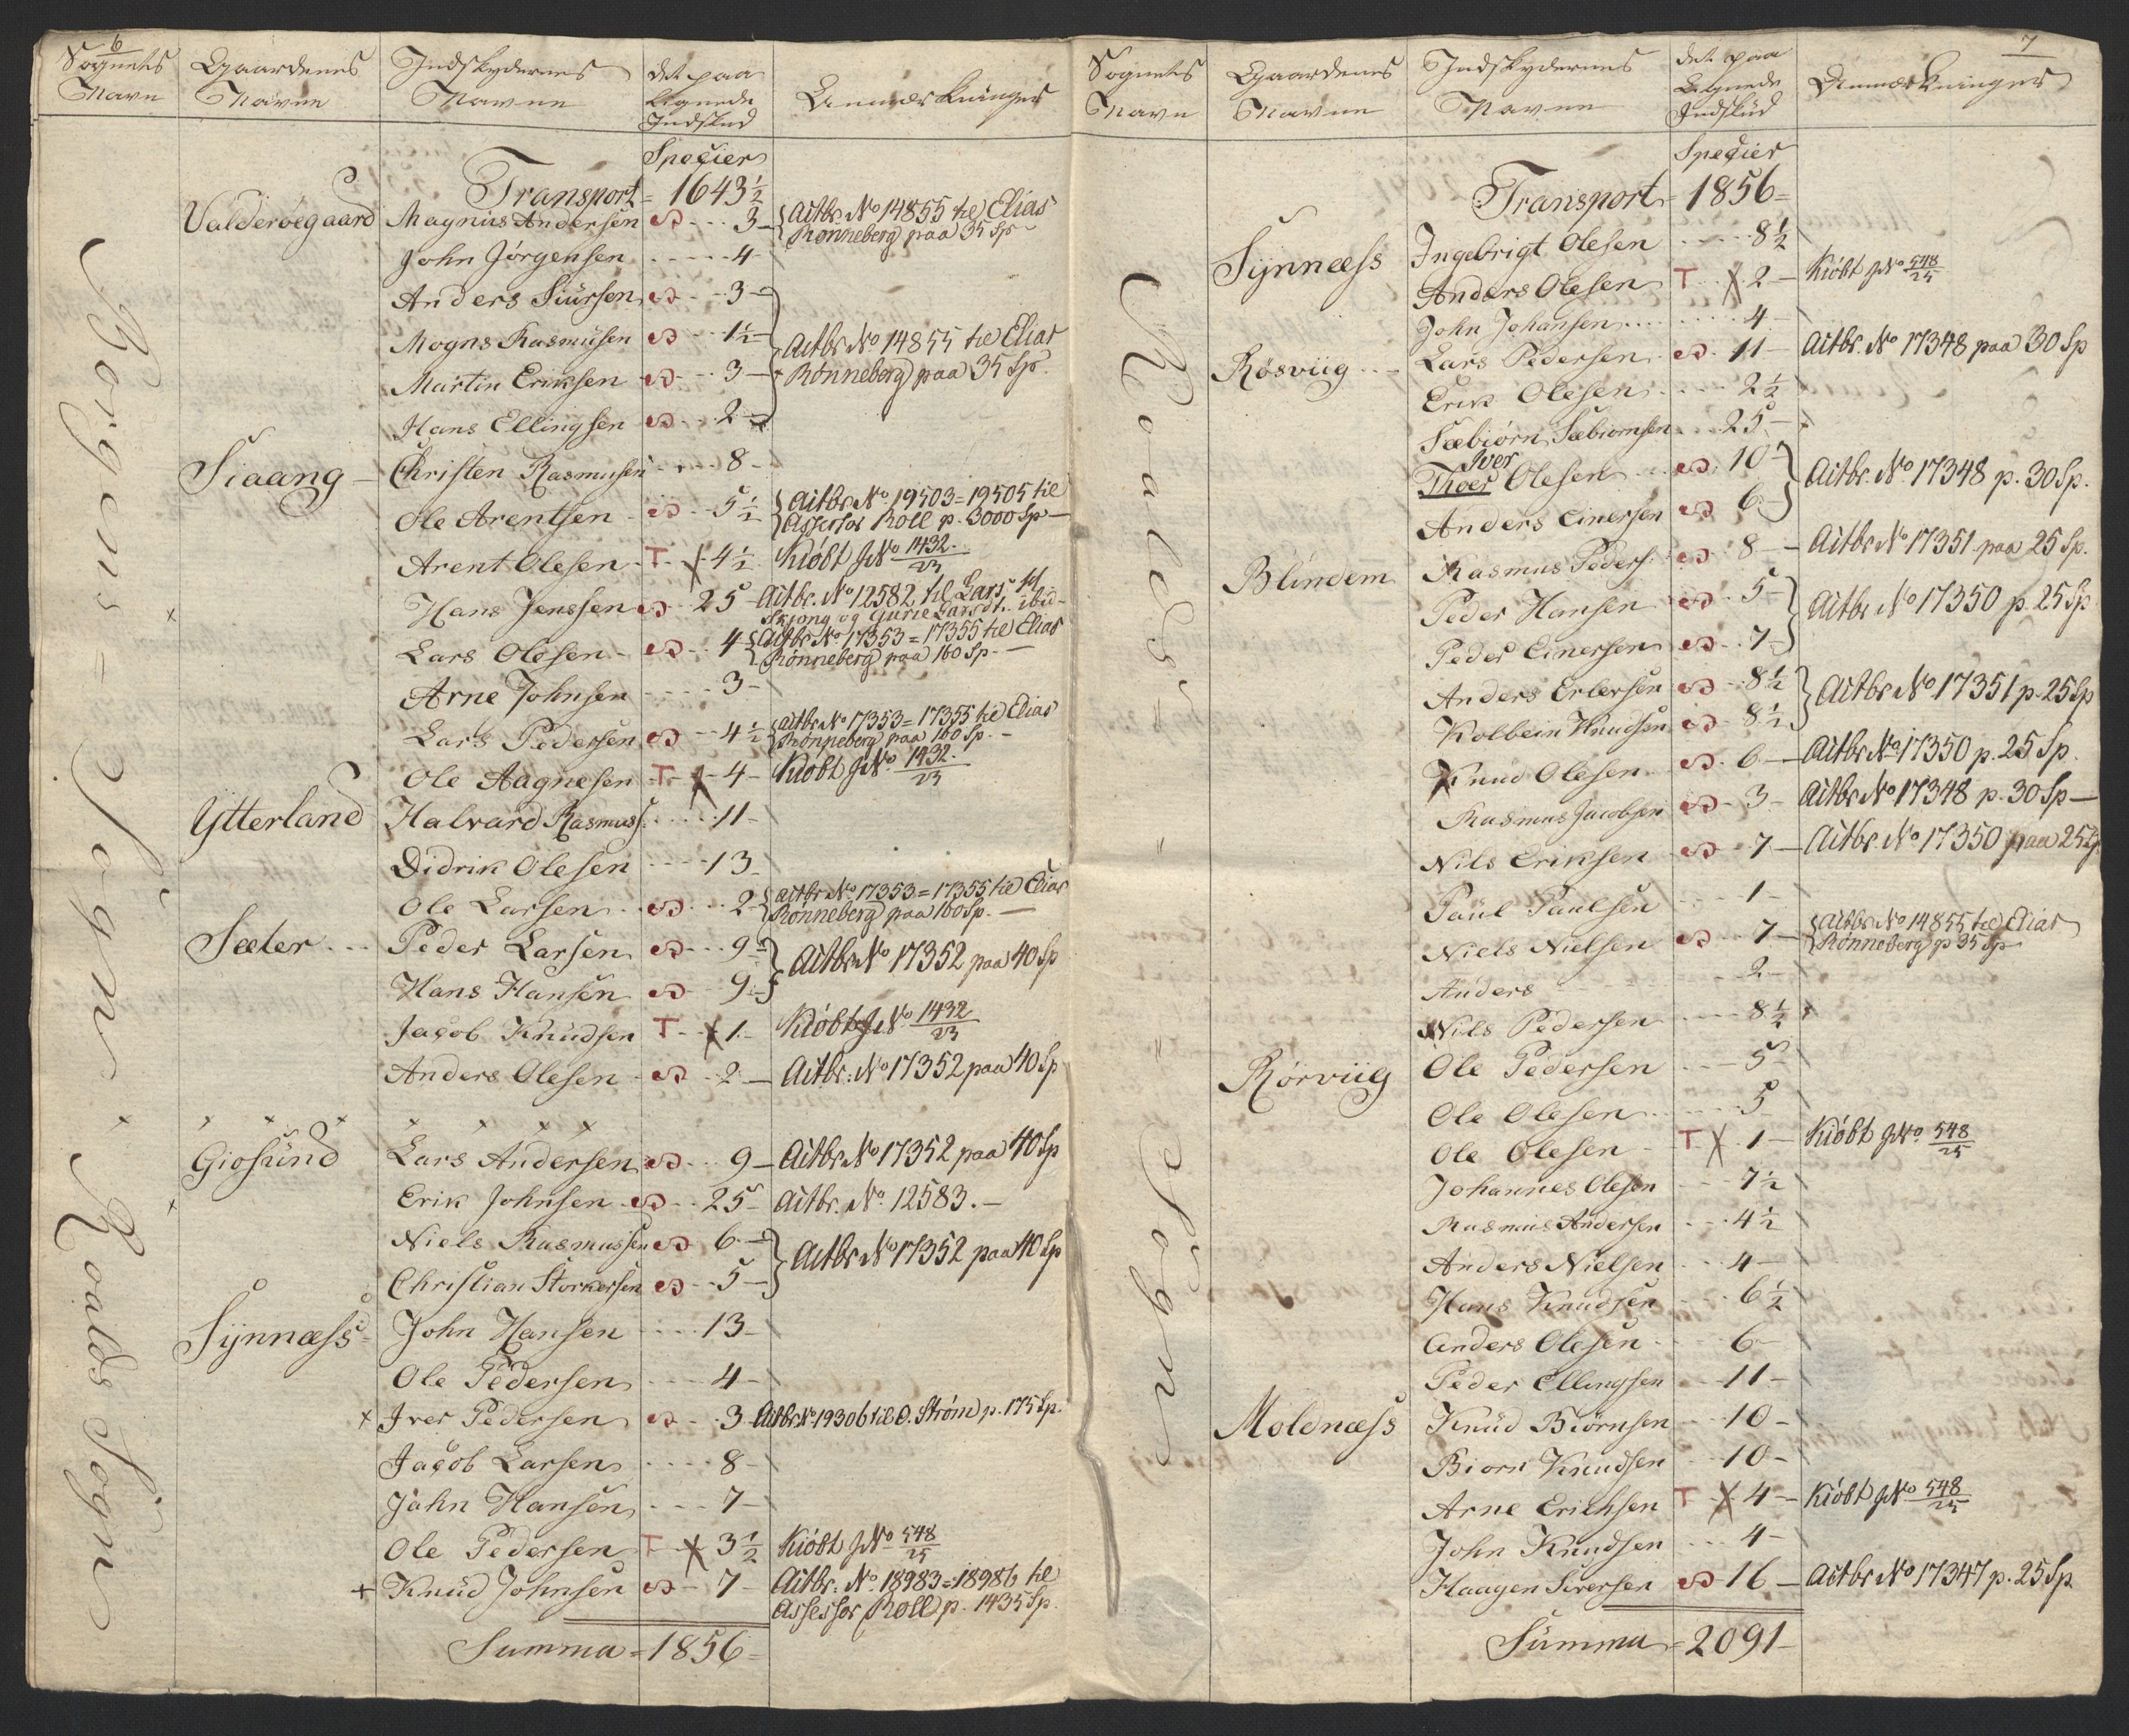 6
Sognets Navn
Gaardenes Navne
Indskydernes Navne
det paa Lignede Indskud
Anmærkninger
Borgens = Sogn " Roalds Sogn
Specier
Transport = 1643½
Valderöegaard Magnus Andersen S 3 - Actbr No 14855 til Elias Rønneberg paa 35 Sp
John Jørgensen 4 -
Anders Siursen S 3 -
Mogns Rasmusen S 1½ - Actbr No 14855 til Elias
Martin Eriksen S 3 - Rønneberg paa 35 Sp.
Hans Ellingsen S 2 -
Siaang - Christen Rasmusen 8 -
Ole Arentsen S 5½ Actbr No. 19503 = 19505 til Assessor Roll p. 3000 Sp -
Arent Olesen T X 4½ Kiöbt JNo 1432/23
Hans Jenssen S 25 - Actbr. No 12582 til Lars Skjong og Gurie Larsdt. ibid -
Lars Olesen S 4 Actbr No 17353 = 17355 til Elias Rønneberg paa 160 Sp. -
Arne Johnsen 3 -
Lars Pedersen S 4½ Actbr No 17353 = 17355 til Elias Rønneberg paa 160 Sp. -
Ole Aagnesen T X 4 - Kiöbt JNo. 1432/23
Ytterland Halvard Rasmuss. 11 -
Didrik Olesen 13 -
Ole Larsen S 2 - Actbr No 17353 = 17355 til Elias Rønneberg paa 160 Sp. -
Sæter Peder Larsen S 9½ Actbr No 17352 paa 40 Sp
Hans Hansen S 9 -
Jacob Knudsen T X 1 - Kiöbt JNo. 1432/23
Anders Olesen S 2 - Actbr: No 17352 paa 40 Sp
Giosund Lars Andersen S 9 - Actbr No 17352 paa 40 Sp
Erik Johnsen S 25 - Actbr. No. 12583. -
Niels Rasmussen S 6 - Actbr No 17352 paa 40 Sp
Christian Storkersen S 5 -
Synnæss John Hansen 13 -
Ole Pedersen 4 -
x Iver Pedersen S 3 Actbr No 19306 til O. Strøm p. 175 Sp.
Jacob Larsen 8 -
John Hansen 7 -
Ole Pedersen T X 3½ Kiöbt JNo 548/25
+ Knud Johnsen S 7 - Actbr. No. 18983 = 18986 til Assessor Roll p. 1435 Sp.
Summa = 1856 =
7
Sognets Navn
Gaardenes Navne
Indskydernes Navne
det paa Lignede Indskud
Anmærkninger
Roalds " " " Sogn
Specier
Transport = 1856 =
Synnæss Ingebrigt Olesen 8½
Anders Olesen T X 2 - Kiöbt JNo 548/25
John Johansen 4 -
Røsviig Lars Pedersen S 11 - Actbr. No 17348 paa 30 Sp
Erik Olesen 2½
Sæbiörn Sæbiornsen 25 -
Iver
Thoer Olesen S 10 - Actbr. No. 17348 p. 30 Sp.
Anders Einersen S 6 -
Blindem Rasmus Peders: S 8 - Actbr No 17351 paa 25 Sp.
Peder Hansen S 5 - Actbr No 17350 p. 25 Sp
Peder Einersen S 7 -
Anders Erlersen S 8½ Actbr No 17351 p. 25 Sp
Kolbein Knudsen S 8½
Knud Olesen S 6 - Actbr No 17350 p. 25 Sp.
Rasmus Jacobsen S 3 - Actbr No 17348 p. 30 Sp -
Nils Eriksen S 7 - Actbr. No 17350 paa 25 Sp
Paul Paulsen 1 -
Niels Nielsen S 7 - Actbr No 14855 til Elias Rønneberg p 35 Sp
Anders 2 -
Nils Pedersen 8½
Rörviig Ole Pedersen 5 -
Ole Olesen 5
Ole Olesen T X 1 - Kiöbt JNo 548/25
Johannes Olesen 7½
Rasmus Andersen 4½
Anders Nielsen 4 -
Hans Knudsen 6½
Anders Olesen 6 -
Peder Ellingsen 11 -
Moldnæss Knud Biörnsen 10 -
Biorn Knudsen 10 -
Arne Erichsen T X 4 - Kiöbt JNo 548/25
John Knudsen 4 -
Haagen Siversen S 16 - Actbr No 17347 p. 25 Sp
Summa = 2091 -